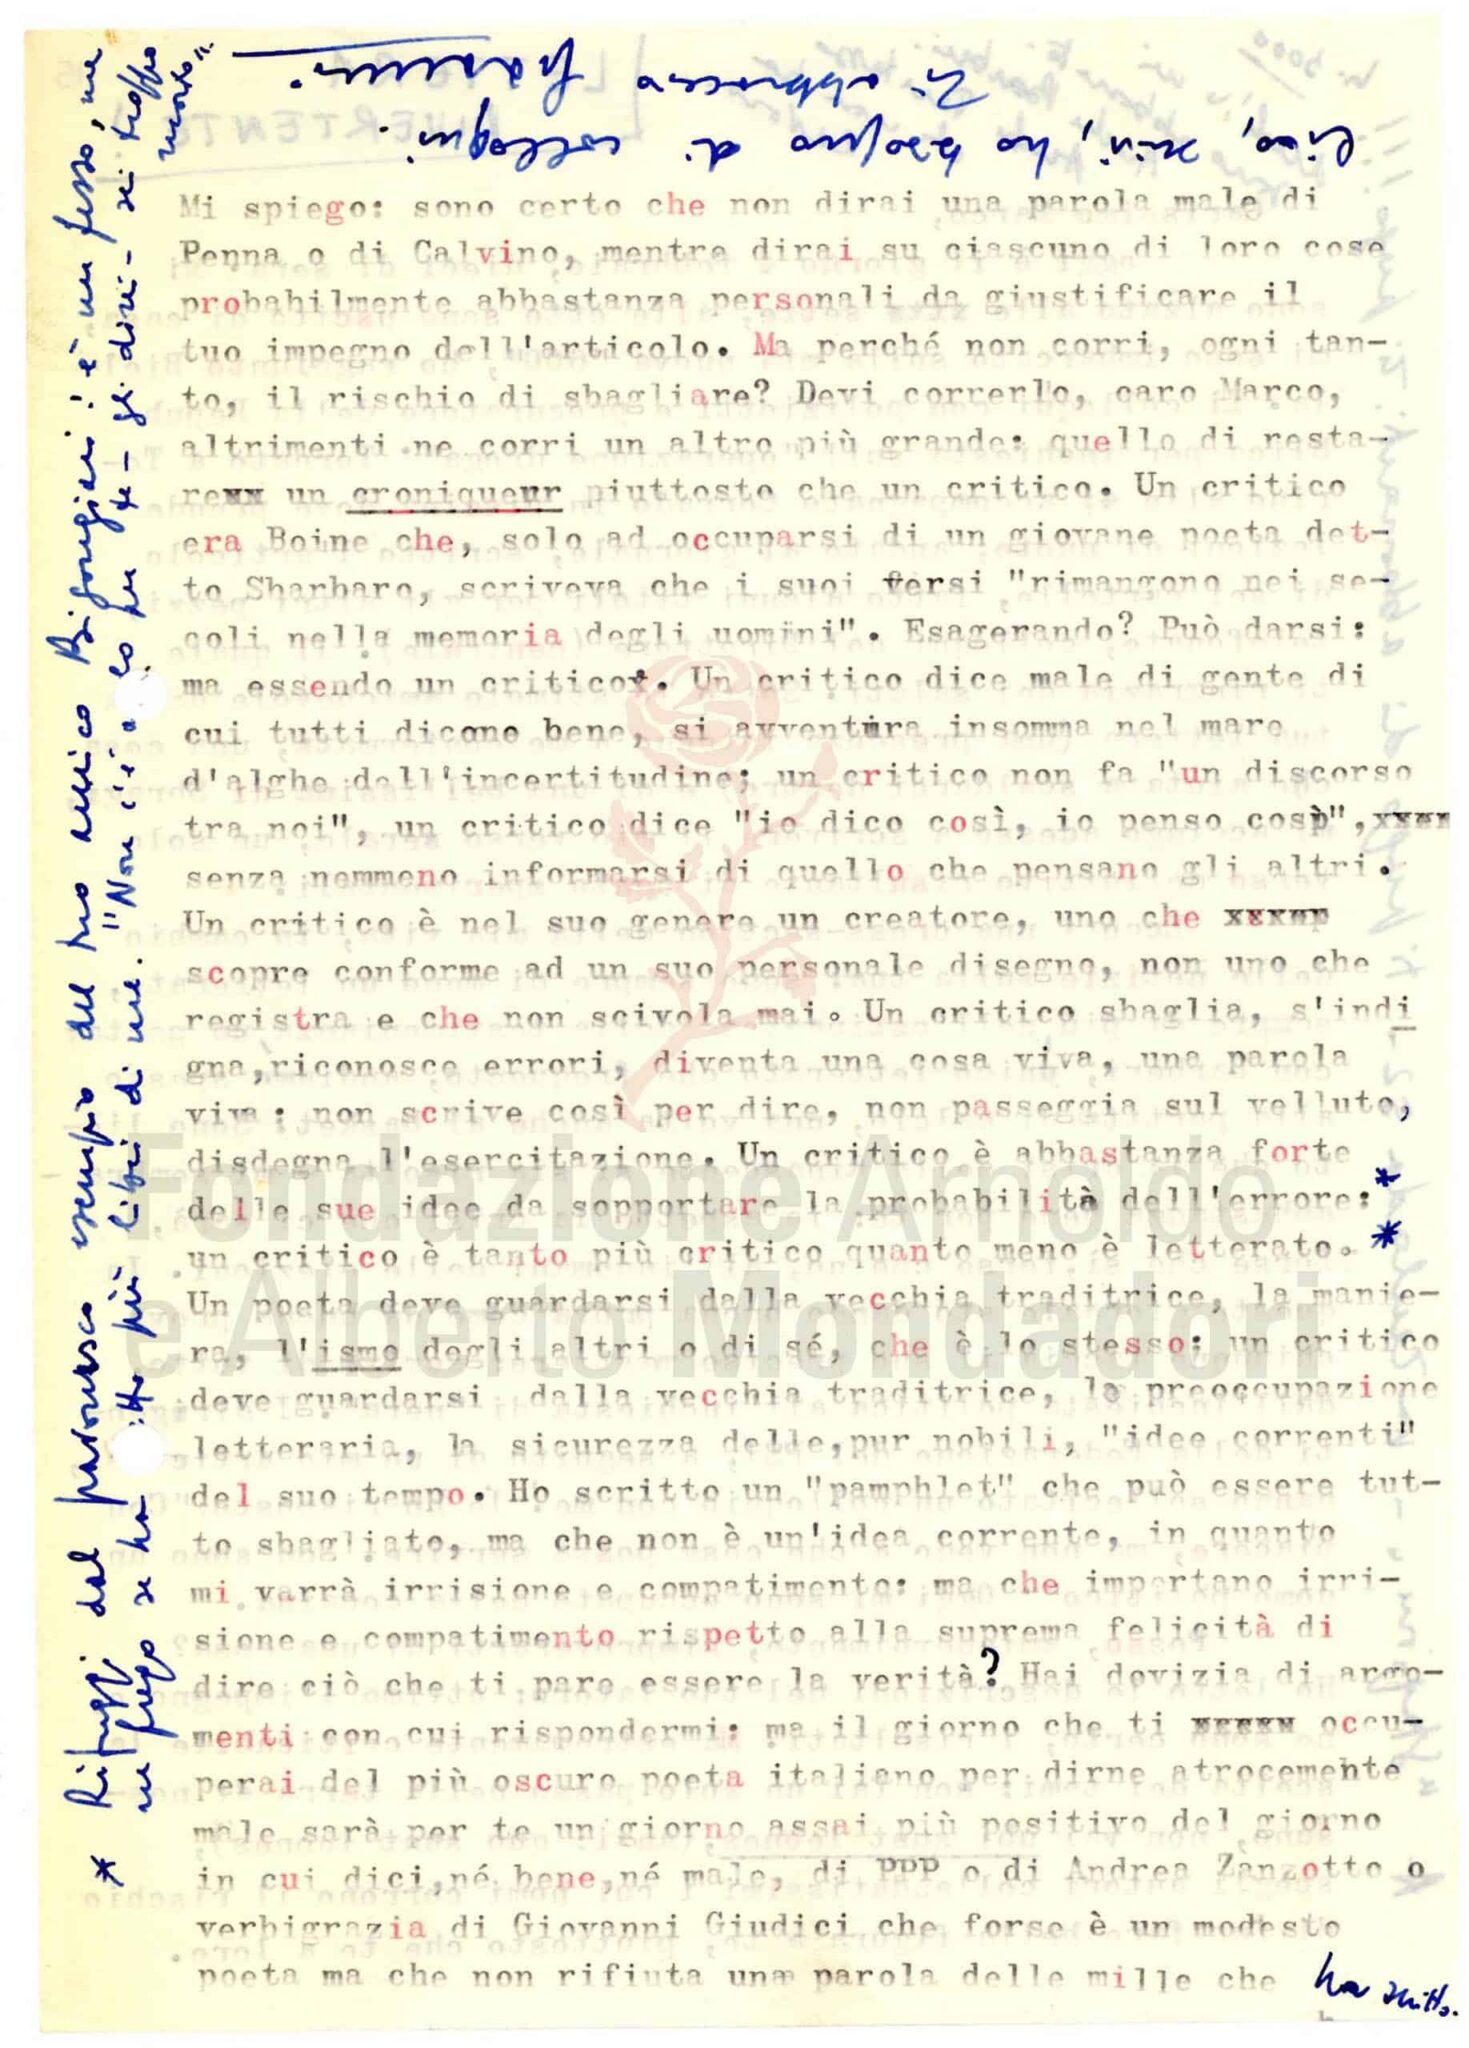 Mi spiego: sono certo che non dirai una parola male di
Penna o di Calvino, mentre dirai su ciascuno di loro cose
probabilmente abbastanza personali da giustificare il
tuo impegno dell'articolo. Ma perché non corri, ogni tan-
to, il rischio di sbagliare? Devi correrlo, caro Marco,
altrimenti ne corri un altro più grande: quello di resta-
rexx un croniqueur piuttosto che un critico. Un critico
era Boine che, solo ad occuparsi di un giovane poeta det-
to Sbarbaro, scriveva che i suoi versi "rimangono nei se-
coli nella memoria degli uomini". Esagerando? Può darsi:
ma essendo un critico. Un critico dice male di gente di
cui tutti dicono bene, si avventura insomma nel mare
d'alghe dell'incertitudine; un critico non fa "un discorso
tra noi", un critico dice "io dico così, io penso così", xxxx
senza nemmeno informarsi di quello che pensano gli altri.
Un critico è nel suo genere un creatore, uno che xxxxx
scopre conforme ad un suo personale disegno, non uno che
registra e che non scivola mai. Un critico sbaglia, s'indi
gna,riconosce errori, diventa una cosa viva, una parola
viva: non scrive così per dire, non passeggia sul velluto,
disdegna l'esercitazione. Un critico è abbastanza forte
delle sue idee da sopportare la probabilità dell'errore: *
un critico è tanto più critico quanto meno è letterato. *
Un poeta deve guardarsi dalla vecchia traditrice, la manie-
ra, l'ismo degli altri o di sé, che è lo stesso: un critico
deve guardarsi dalla vecchia traditrice, la preoccupazione
letteraria, la sicurezza delle,pur nobili, "idee correnti"
del suo tempo. Ho scritto un "pamphlet" che può essere tut-
to sbagliato, ma che non è un'idea corrente, in quanto
mi varrà irrisione e compatimento: ma che importano irri-
sione e compatimento rispetto alla suprema felicità di
dire ciò che ti pare essere la verità? Hai dovizia di argo-
menti con cui rispondermi: ma il giorno che ti xxxxx occu-
perai del più oscuro poeta italiano per dirne atrocemente
male sarà per te un giorno assai più positivo del giorno
in cui dici,né bene,né male, di PPP o di Andrea Zanzotto o
verbigrazia di Giovanni Giudici che forse è un modesto
poeta ma che non rifiuta una parola delle mille che ha scritto.
Ciao, scrivi, ho bisogno di colloqui.
Ti abbraccio
* Rifuggi dal pauroso esempio del tuo amico Bigongiari! è un fesso, ma
me ne frego se ha più libri di me. "Non c'è per te – gli dissi – sei troppo
Fondazione Arnoldo
e Alberto Mondadori